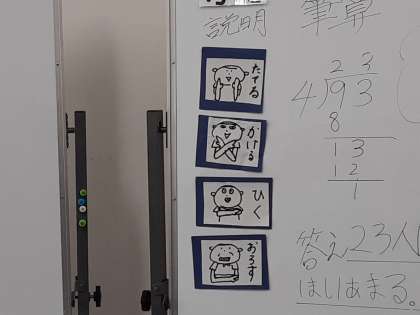 説明
筆算
たてる
かける
ひく
おろす
23
4)93
8
13
12
1
答え23人
はしあまる。